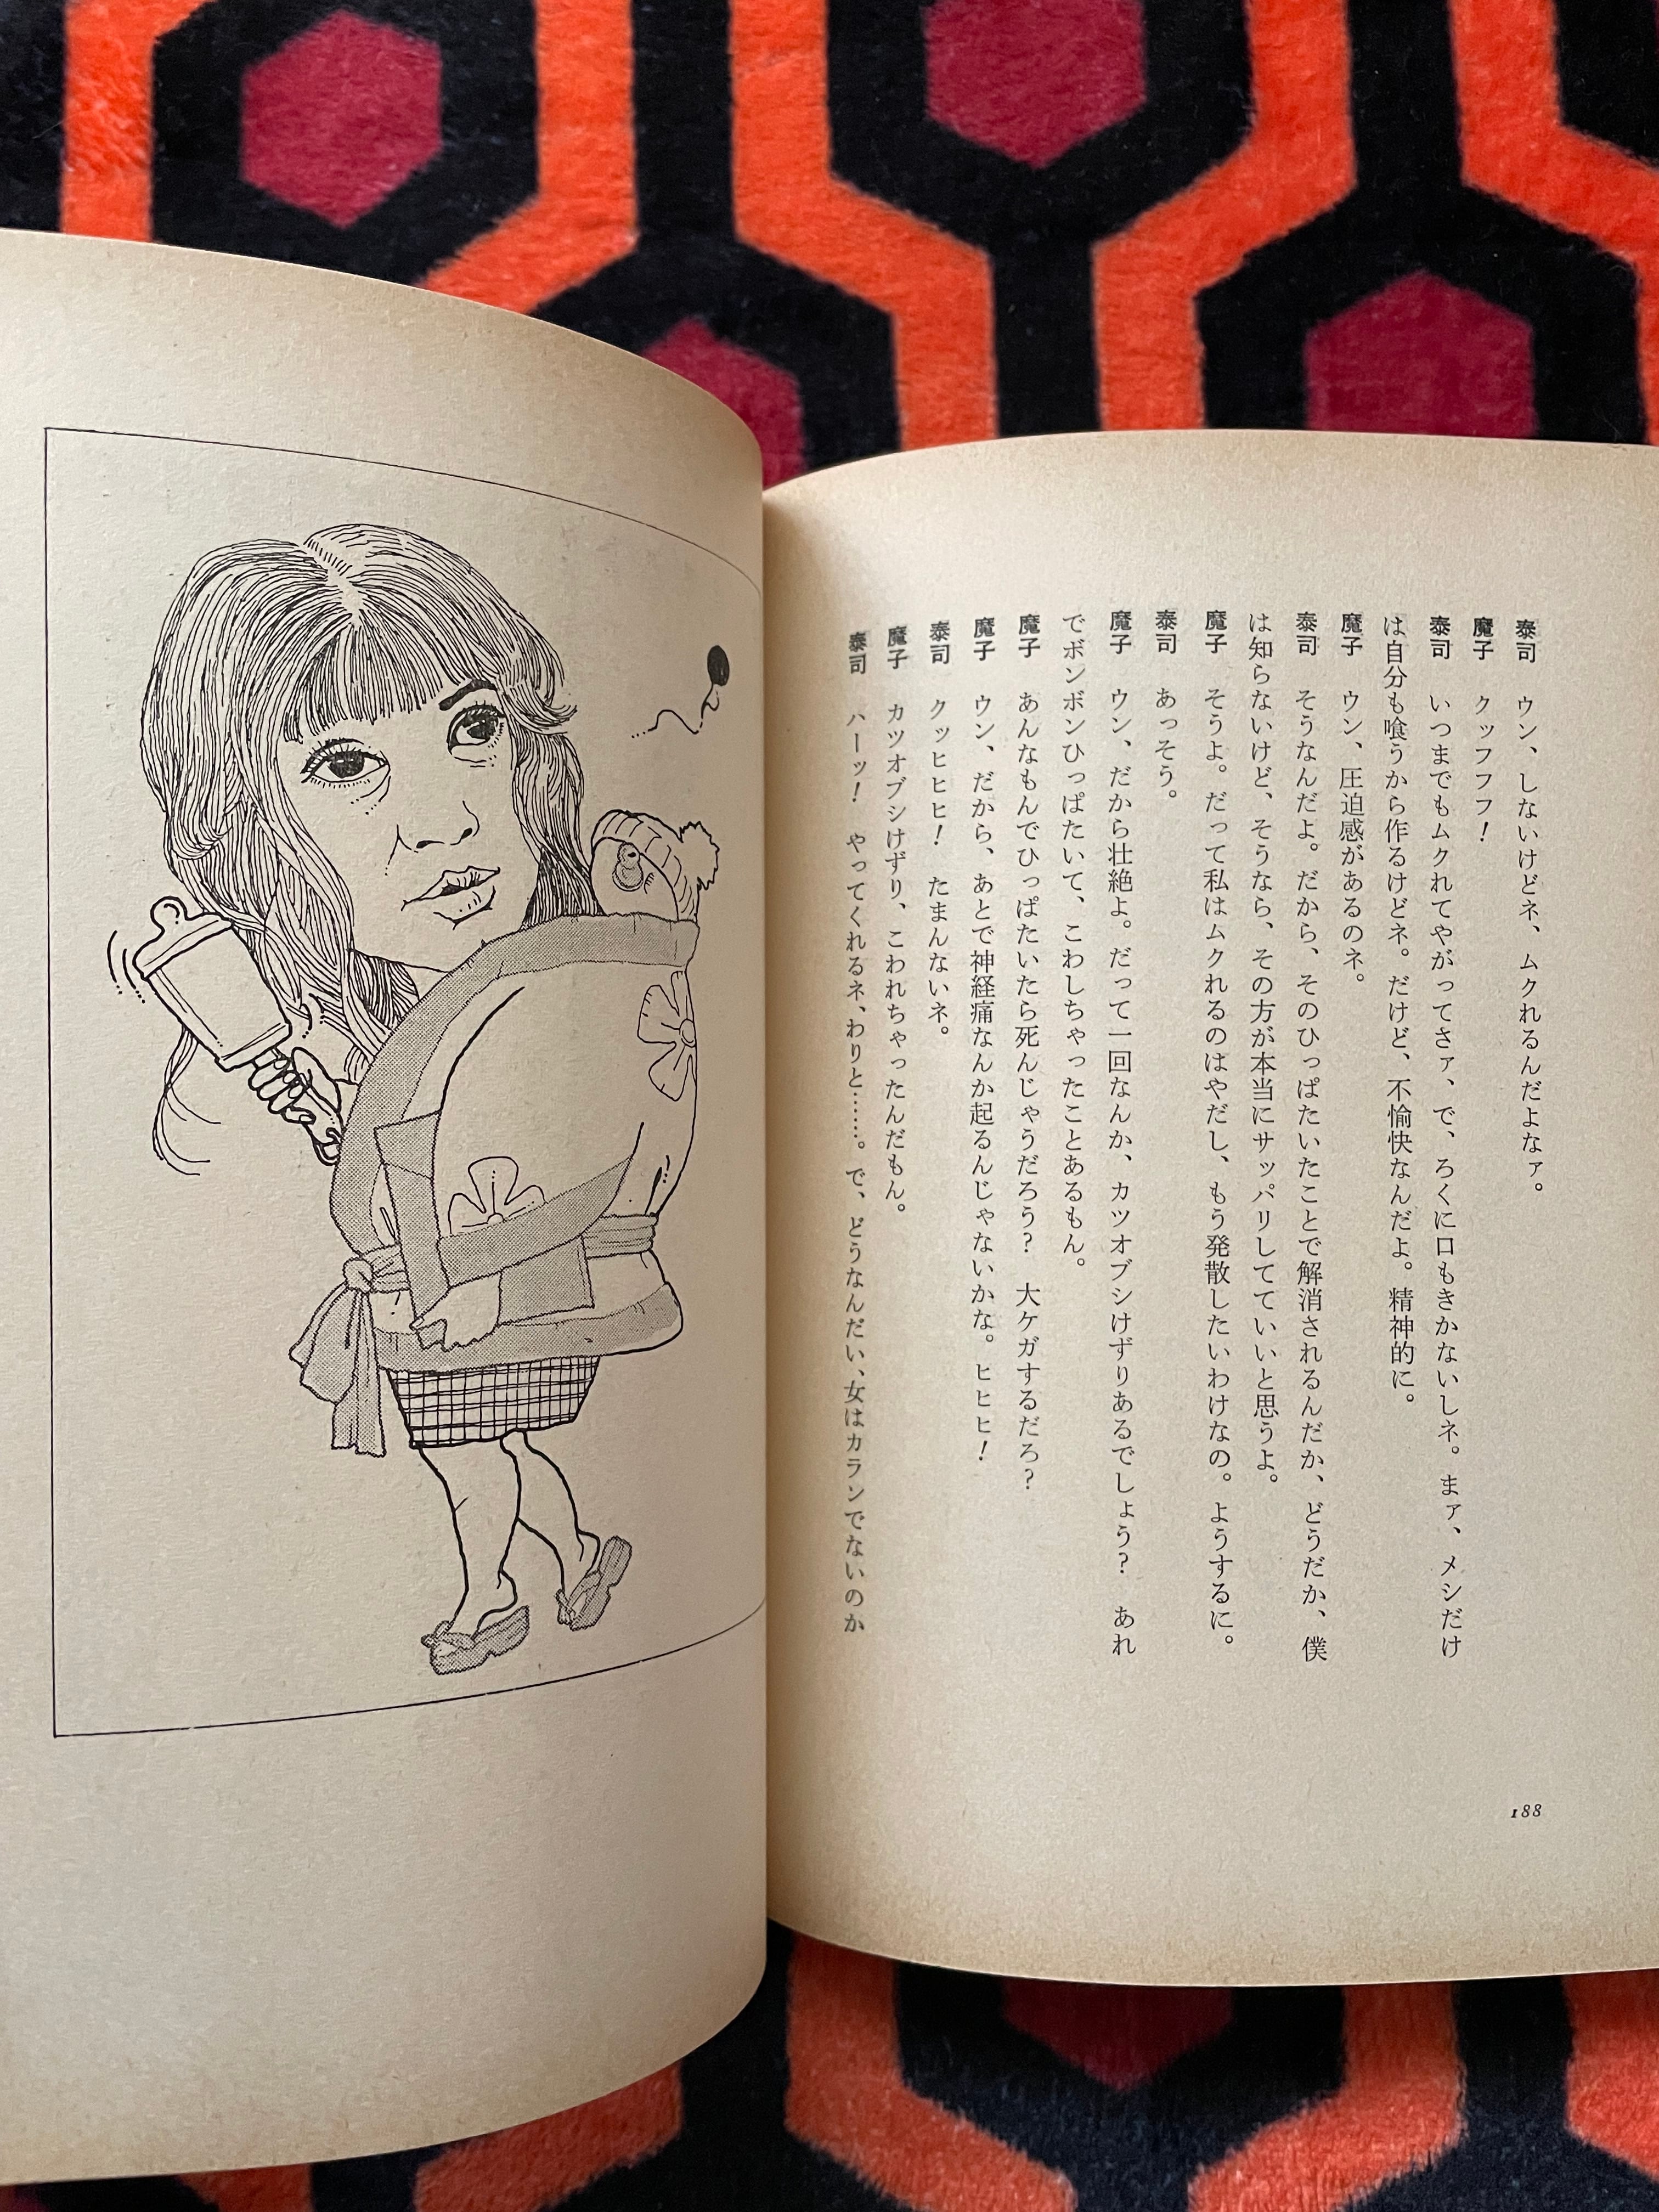 泰司　ウン、しないけどネ、ムクれるんだよなァ。
魔子　クッフフフ！
泰司　いつまでもムクれてやがってさァ、で、ろくに口もきかないしネ。まァ、メシだけ
は自分も喰うから作るけどネ。だけど、不愉快なんだよ。精神的に。
魔子　ウン、圧迫感があるのネ。
泰司　そうなんだよ。だから、そのひっぱたいたことで解消されるんだか、どうだか、僕
は知らないけど、そうなら、その方が本当にサッパリしてていいと思うよ。
魔子　そうよ。だって私はムクれるのはやだし、もう発散したいわけなの。ようするに。
泰司　あっそう。
魔子　ウン、だから壮絶よ。だって一回なんか、カツオブシけずりあるでしょう？　あれ
でボンボンひっぱたいて、こわしちゃったことあるもん。
魔子　あんなもんでひっぱたいたら死んじゃうだろう？　大ケガするだろ？
魔子　ウン、だから、あとで神経痛なんか起るんじゃないかな。ヒヒヒ！
泰司　クッヒヒヒ！　たまんないネ。
魔子　カツオブシけずり、こわれちゃったんだもん。
泰司　ハーッ！　やってくれるネ、わりと……。で、どうなんだい、女はカランでないのか
188